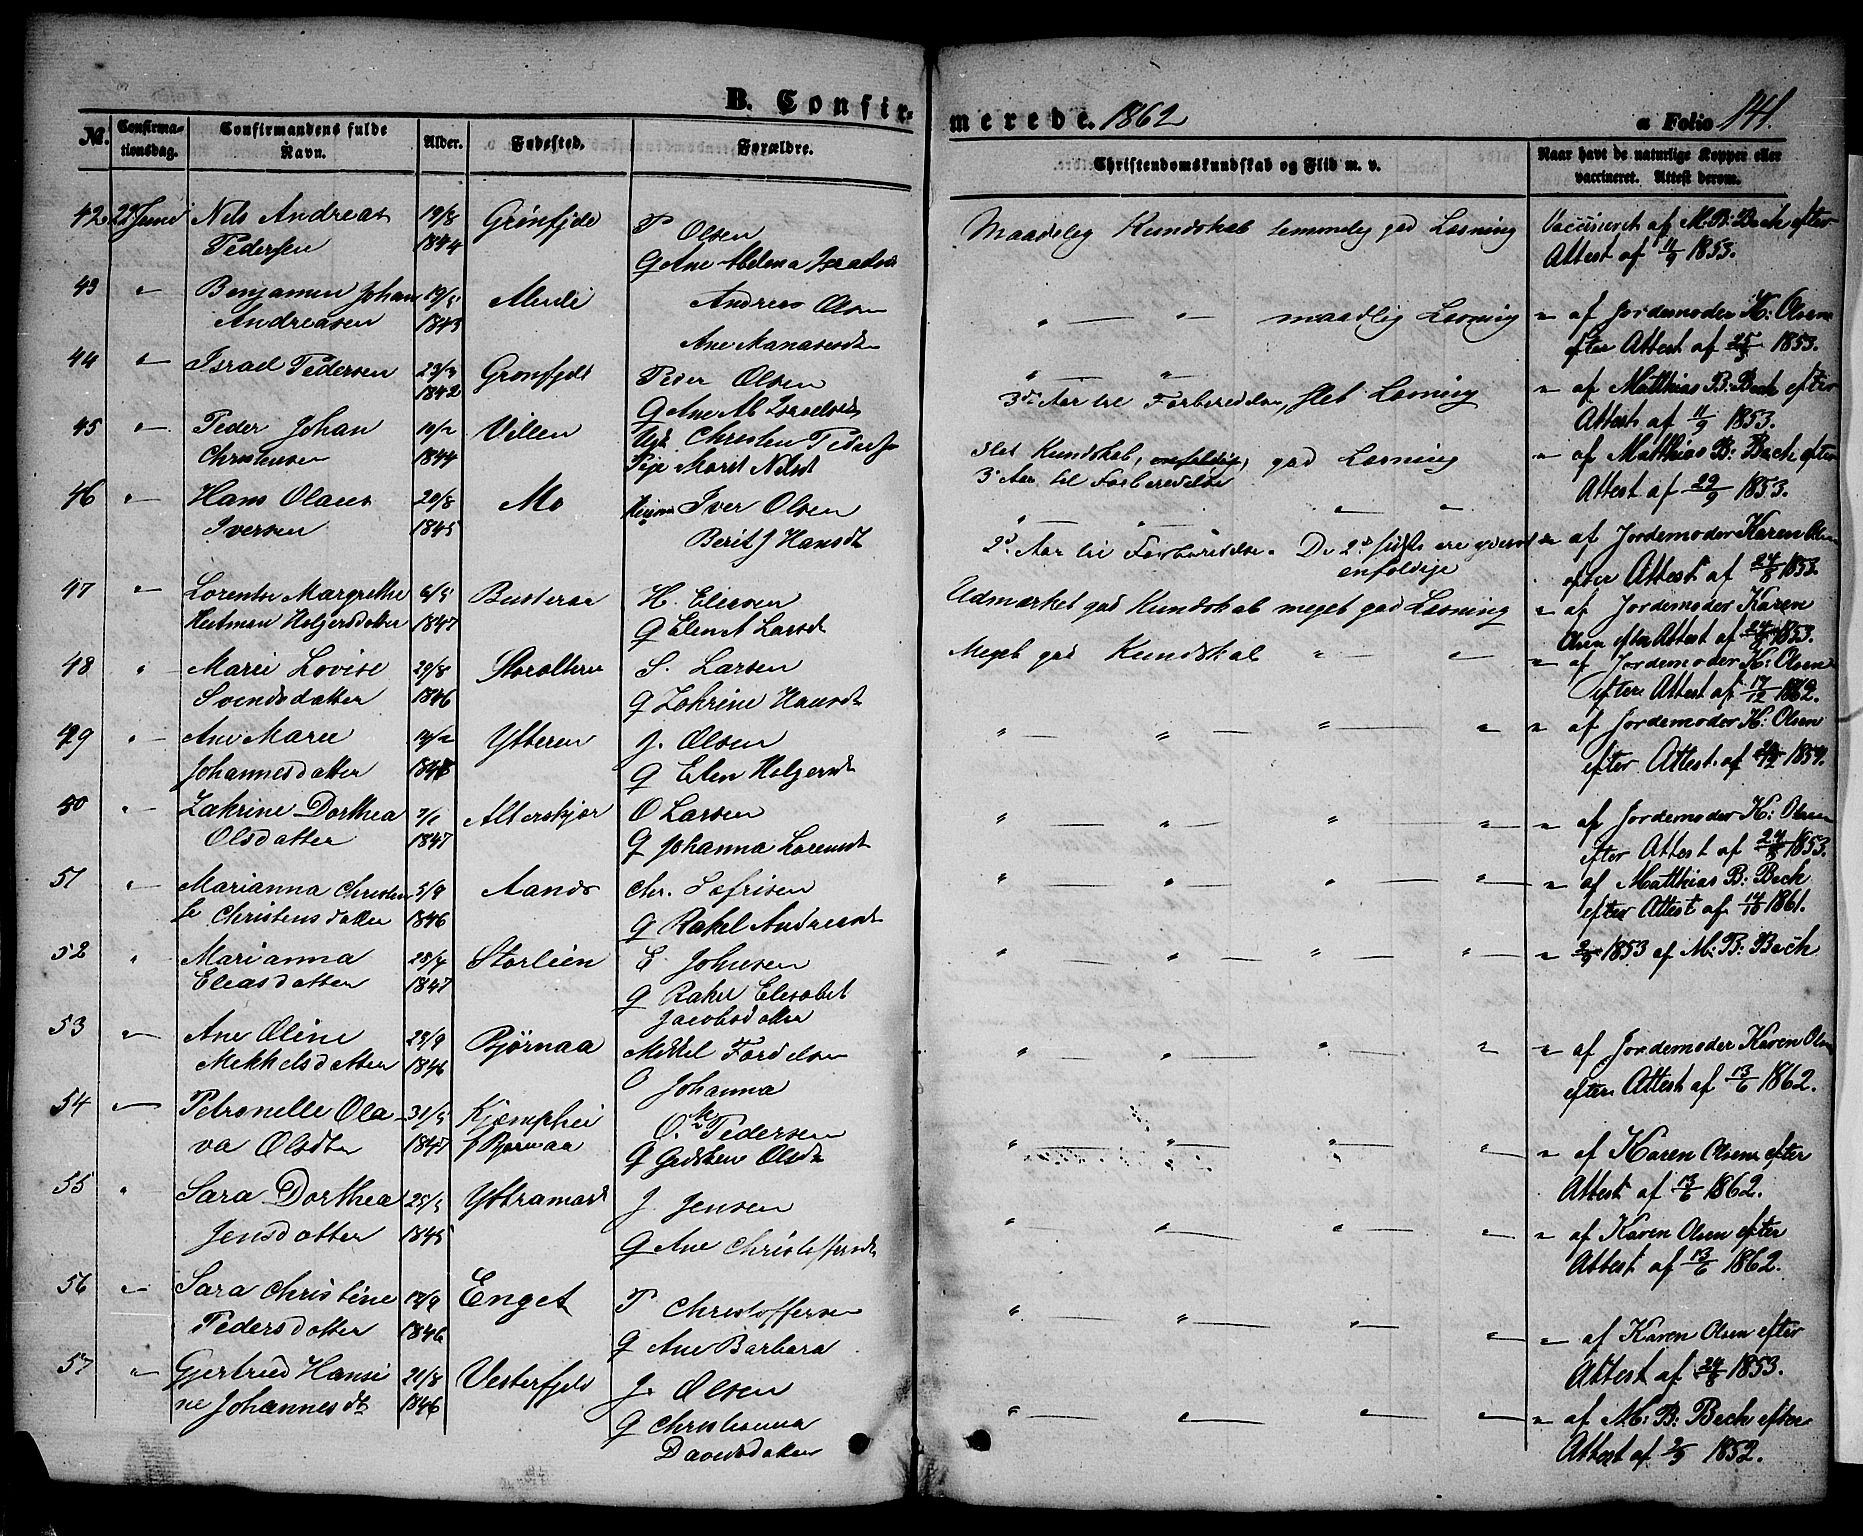 B. Confir-
merede. 1862
a Folio 141.
No. Confirma-tionsdag. Confirmandens fulde Navn. Alder. Fødested. Forældre.
Christendomskundskab og Flid m. v.
Naar havt de naturlige Kopper eller vaccineret. Attest derom.
42 22 Juni Nils Andreas 19/8 Grönfjeld P Olsen Maadelig Kundskab temmelig god Læsning Vaccineret af M. B: Bech efter
Pedersen 1844 G Ane Helena Attest af 11/9 1853.
43 " Benjamin Johan 19/5 Andreas Olsen " " maadlig Læsning " af Jordemoder K: Olsen
Andreasen 1843 Ane efter Attest af 25/8 1853.
44 " Israel Pedersen 23/3 Gronfjeld Peder Olsen " " " af Matthias B: Bech efter
1842 G Ane 3die Aar til Forberedelse, slet Læsning Attest af 11/9 1853.
45 " Peder Johan Villen Christen slet Kundskab, enfoldig, god Læsning " af Matthias B: Bech efter
Christensen 1844 Pige Marit Nilsdt 3 Aar til Forberedelse Attest af 29/9 1853.
46 " Hans Olaus 20/8 Mo Iver Olsen " " " " " af Jordemoder Karen Olsen
Iversen 1845 Berit J Hansdt 2d Aar til Forberedelse. De 2de sidste ere
enfoldige efter Attest af 24/8 1853.
47 " Lorentse Margrethe 6/5 Busteraa H. Eliesen Udmærket god Kundskab meget god Læsning " af Jordemoder Karen
Heitman Holgersdatter 1847 G Elen A Larsdt Olsen efter Attest af 24/8 1853.
48 " Marie Lovise 29/8 Storalteren S. Larsen Meget god Kundskab " " " af Jordemoder K: Olsen
Svendsdatter 1846 G Zakrine Hansdt efter Attest af 17/12 1862.
49 " Ane Marie Ytteren J. Olsen " " " " " af Jordemoder K: Olsen
Johannesdatter G Elen Holgersdt efter Attest af 1854.
50 " Zakrine Dorthea 7/1 Alterskjær O Larsen " " " " " af Jordemoder K: Olsen
Olsdatter 1847 G Johanna Lorensdt efter Attest af 24/8 1853.
51 " Marianna Christen 5/9 Aanæs Chr. Zefrisen " " " " " af Matthias B: Bech
se Christensdatter 1846 G Rakel Andreasdt efter Attest af 14/10 1861.
52 " Marianna 28/4 Storlien E Johnsen " " " " " 2/9 1853 af M: B: Bech
Eliasdatter 1847 G Rakel Elisabet
Jacobsdatter
53 " Ane Oline 28/9 Bjørnaa Mikkel Fordelsen " " " " " af Jordemoder Karen Olsen
Mekkelsdatter 1846 Johanna efter Attest af 13/6 1862.
54 " Petronelle Ola 31/5 Kjæmphei O. Pedersen " " " " " af Karen Olsen efter
va Olsdtr 1847 p Bjørnaa G Gertken Olsdt Attest af 13/6 1862.
55 " Sara Dorthea 25/5 Yttramark J. Jensen " " " " " af Karen Olsen efter
Jensdatter 1845 G Ane Christoffersdt Attest af 13/6 1862.
56 " Sara Christine 12/9 Enget P Christoffersen " " " " " af Karen Olsen efter
Pedersdatter 1846 G Ane Barbara Attest af 24/8 1853.
57 " Gjertrud Hansi 21/8 Vesterfjeld J. Olsen " " " " " af M: B: Bech efter
ne Johannesdt 1846 G Christianna Attest af 2/9 1852.
Davidsdatter